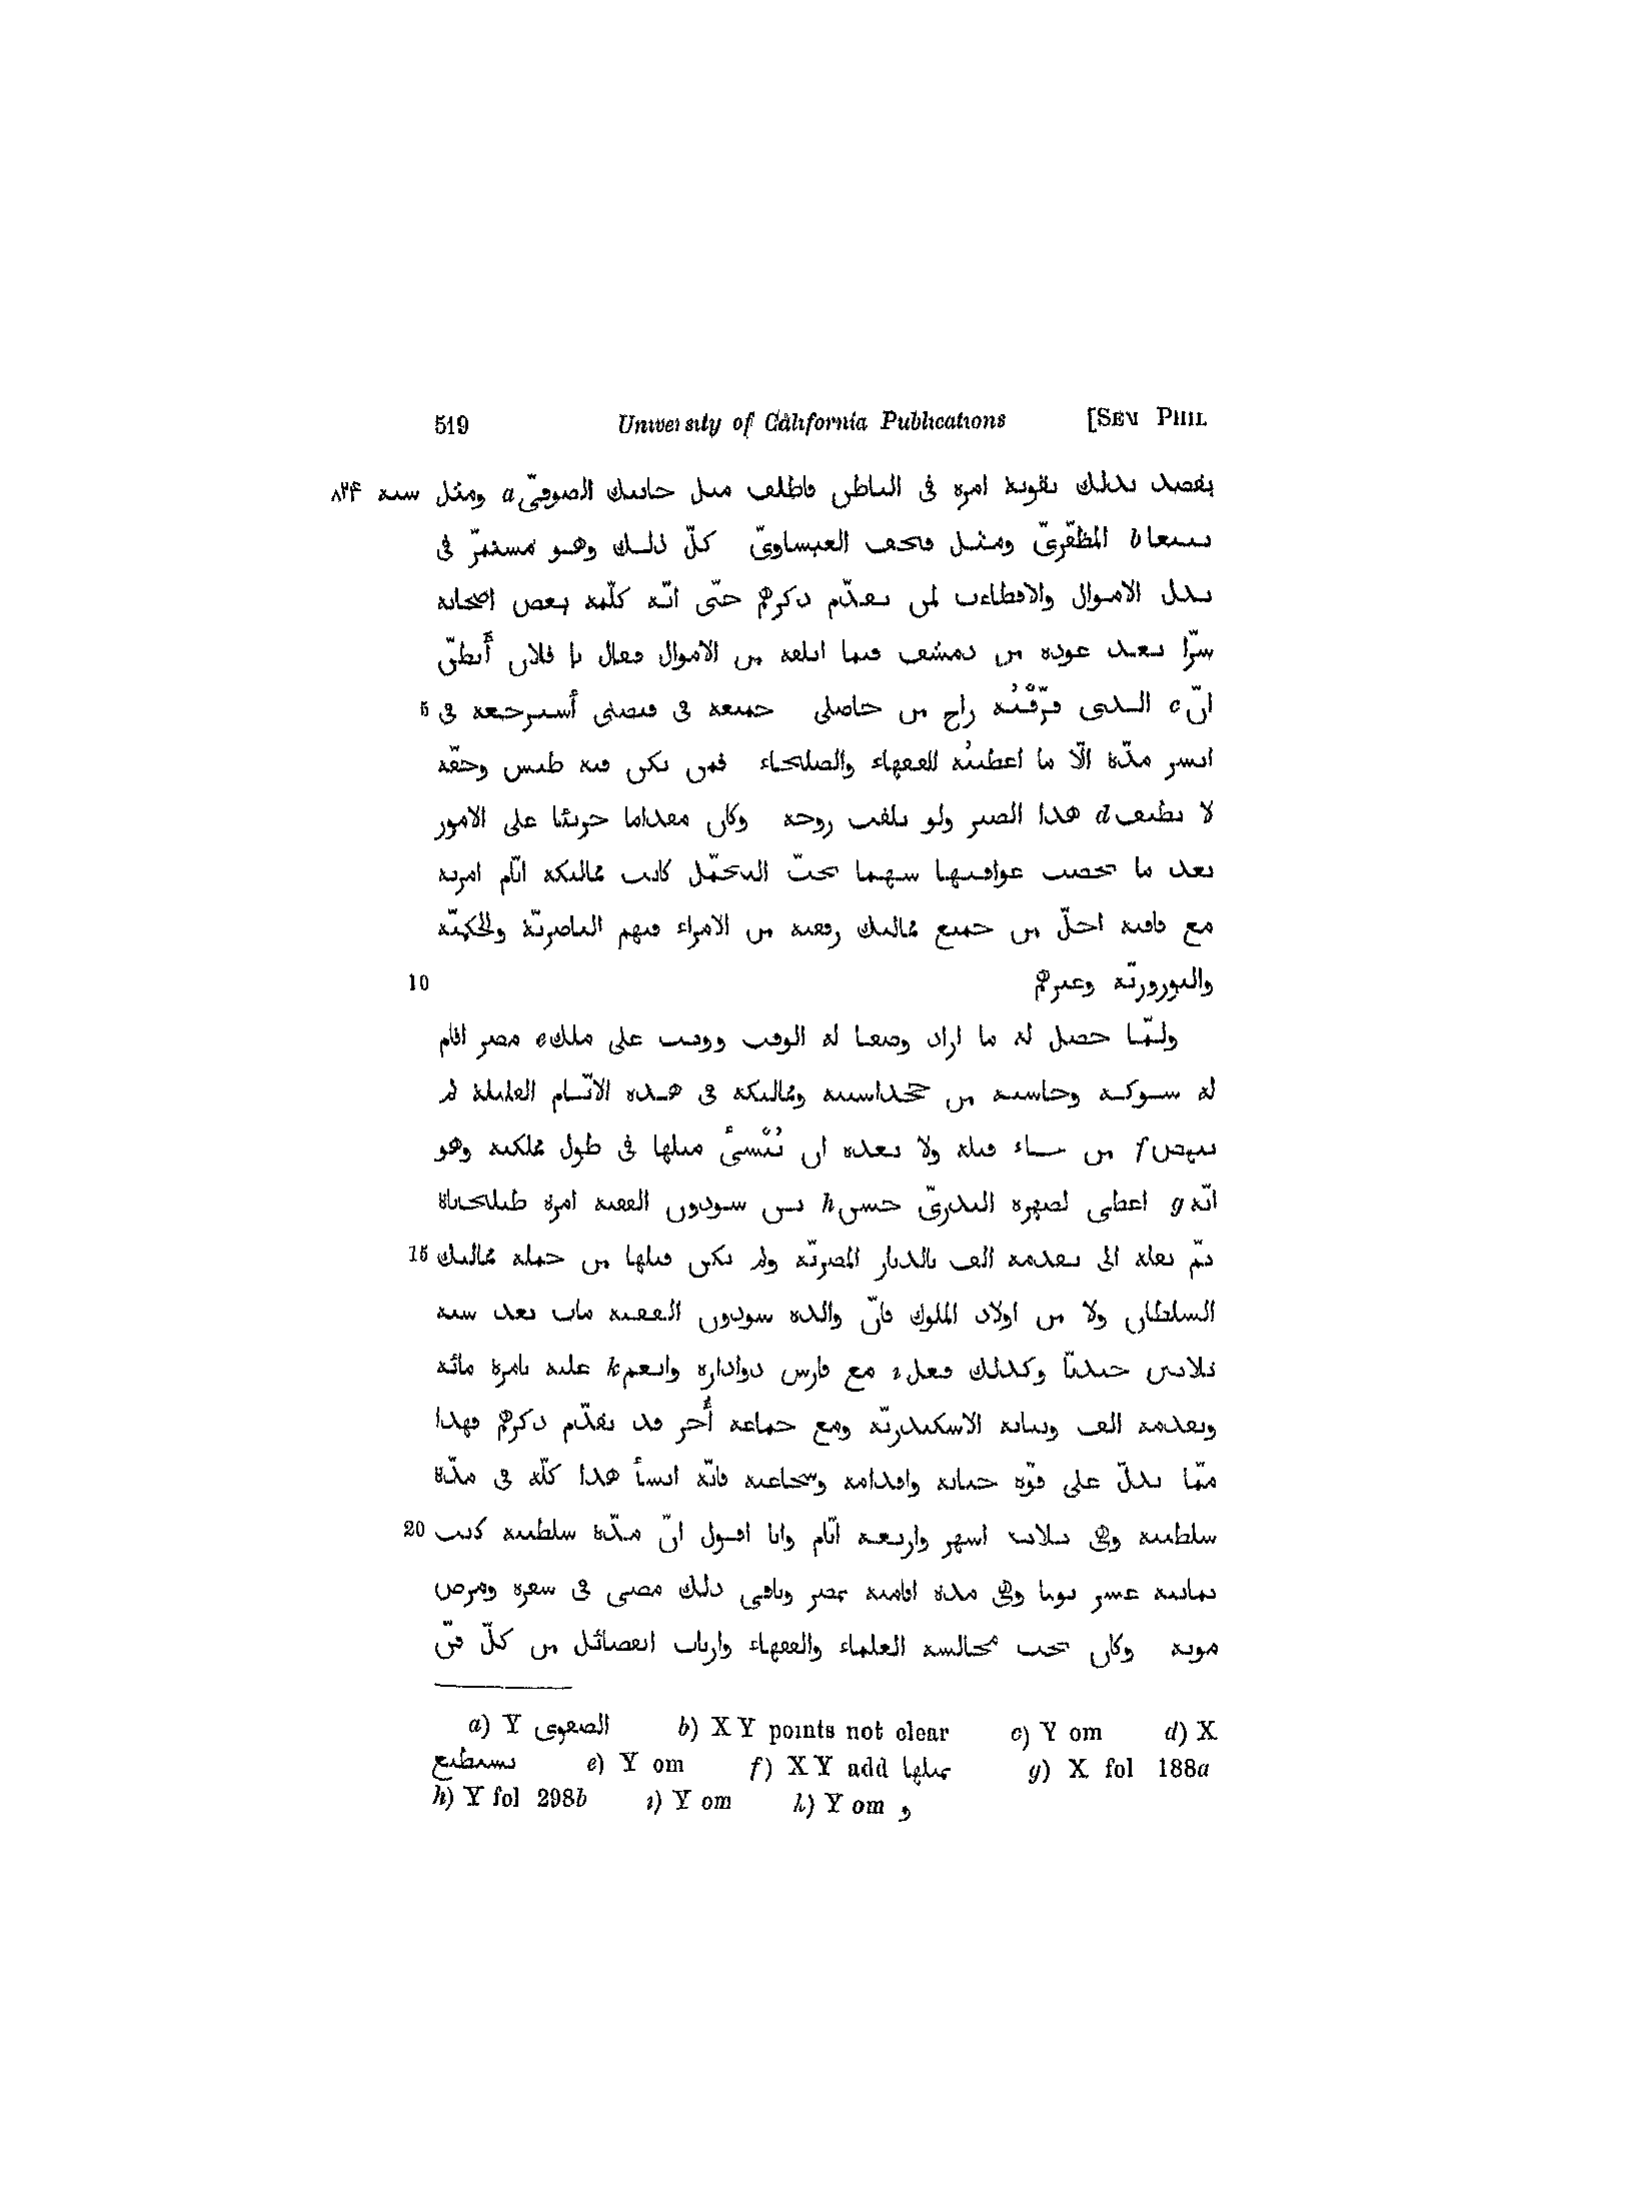 519 University of California Publications [SEM PHIL
يقصد بذلك تقوية امره فى الباطن فاطلق مثل جانبك الصوفىّ a ومثل سنة ٨٢۴
b المظفّرىّ ومثل قجق العيساوىّ كلّ ذلك وهو مستمرّ فى
بذل الاموال والاقطاعات لمن تقدّم ذكرهم حتّى انّه كلّمه بعض اصحابه
سرّا بعد عوده من دمشق فيما اتلفه من الاموال فقال يا فلان أتظنّ
انّ c الذى فرّقْتُه راح من حاصلى جميعه فى قبضتى أسترجعه فى 5
ايسر مدّة الّا ما اعطيتُه للفقهاء والصلحاء فمن يكن فيه طيش وخفّة
لا يطيق d هذا الصبر ولو تلفت روحه وكان مقداما جريئا على الامور
بعد ما يحسب عواقبها شهما يحبّ التجمّل كانت مماليكه ايّام امرته
مع فاقته اجلّ من جميع مماليك رفقته من الامراء فيهم الناصريّة والجكميّة
والنوروزيّة وغيرهم 10
ولمّا حصل له ما اراد وصفا له الوقت ووثب على ملك e مصر اقام
له شوكة وحاشية من خجداشيته ومماليكه فى هذه الايّام القليلة لم
ينهض f من جاء قبله ولا بعده ان يُنْشئَ مثلها فى طول مملكته وهو
انّه g اعطى لصهره البدرىّ حسن h بن سودون الفقيه امرة طبلخاناة
ثمّ نقله الى تقدمة الف بالديار المصريّة ولم يكن قبلها من جملة مماليك 15
السلطان ولا من اولاد الملوك فانّ والده سودون الفقيه مات بعد سنة
ثلاثين جنديّا وكذلك فعل i مع فارس دواداره وانعم k عليه بامرة مائة
وتقدمة الف ونيابة الاسكندريّة ومع جماعة أُخر قد تقدّم ذكرهم فهذا
ممّا يدلّ على قوّة جنانه واقدامه وشجاعته فانّه انشأ هذا كلّه فى مدّة
سلطنته وهى ثلاثة اشهر واربعة ايّام وانا اقول انّ مدّة سلطنته كانت 20
ثمانية عشر يوما وهى مدة اقامته بمصر وباقى ذلك مضى فى سفره ومرض
موته وكان يحب مجالسة العلماء والفقهاء وارباب الفضائل من كلّ فنّ
a) Y الصفوى b) X Y points not clear c) Y om d) X
يستطيع e) Y om f) X Y add بمثلها g) X fol 188a
h) Y fol 298b i) Y om k) Y om و